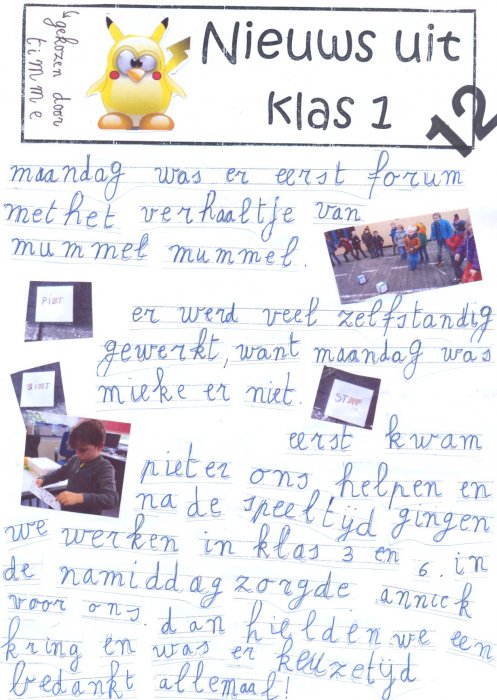 gekozen door
timme
Nieuws uit
klas 1
12
maandag was er eerst forum
met het verhaaltje van
mummel mummel.
PINT
er werd veel zelfstandig
gewerkt, want maandag was
mieke er niet.
STOMP
eerst kwam
pieter ons helpen en
na de speeltijd gingen
we werken in klas 3 en 6. in
de namiddag zorgde annick
voor ons. dan hielden we een
kring en was er keuzetijd
bedankt allemaal!